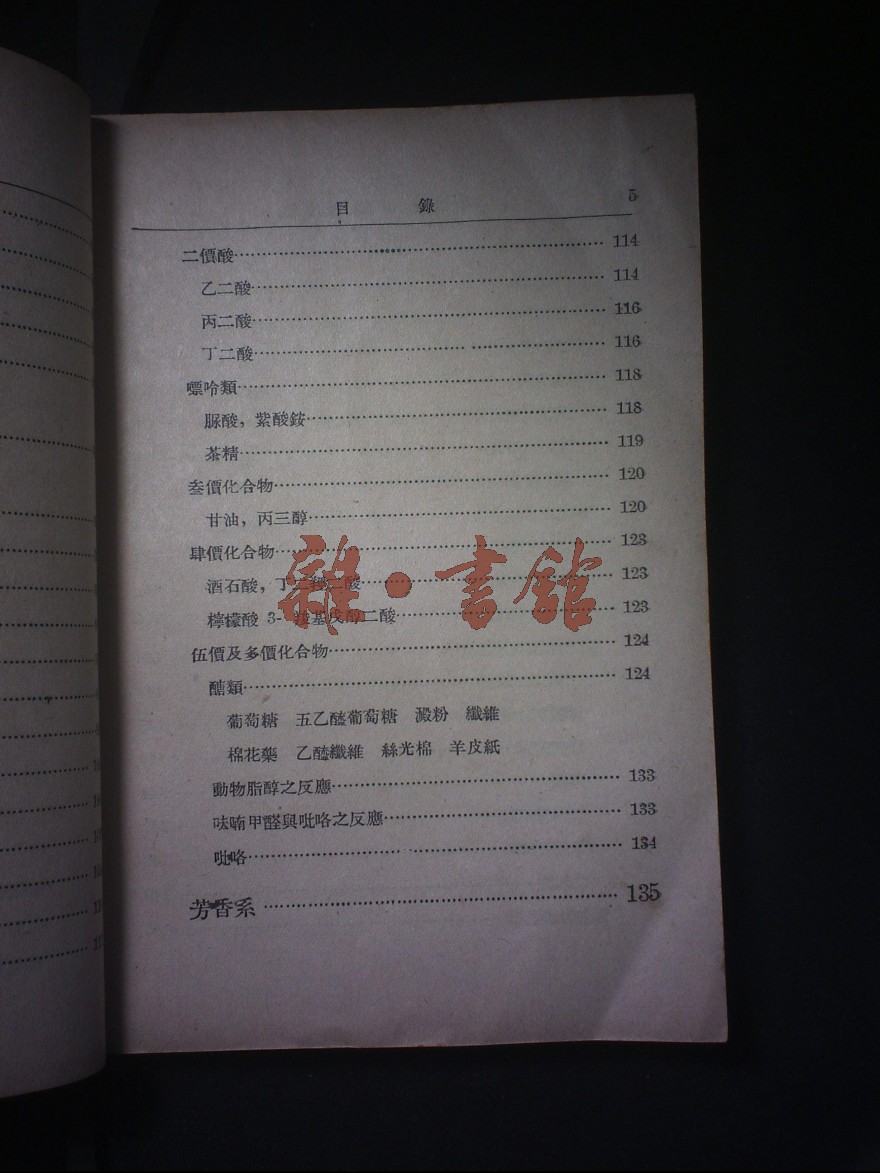 目 錄 5
二價酸 114
乙二酸 114
丙二酸 116
丁二酸 116
嘌呤類 118
脲酸，紫酸銨 118
茶精 119
叁價化合物 120
甘油，丙三醇 120
肆價化合物 123
酒石酸，丁二二酸 123
檸檬酸 3-基戊醇二酸 123
伍價及多價化合物 124
醣類 124
葡萄糖 五乙醯葡萄糖 澱粉 纖維
棉花藥 乙醯纖維 絲光棉 羊皮紙
動物脂醇之反應 133
呋喃甲醛與吡咯之反應 133
吡咯 134
芳香系 135
雜·書館